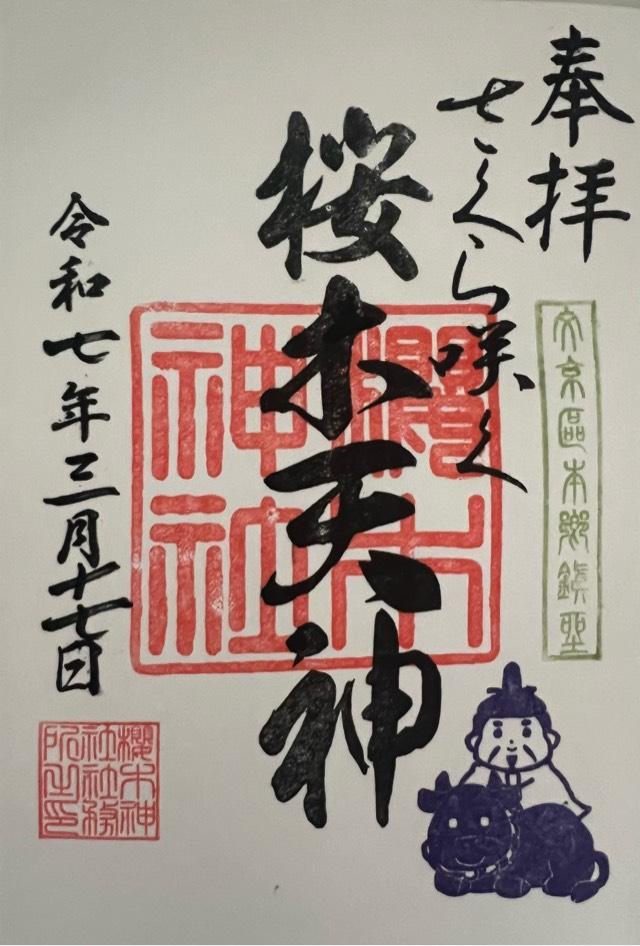 奉拝
さくら咲く
文京區本郷鎮座
桜木天神
櫻木
神社
令和七年三月十七日
櫻木神
社社務
所之印